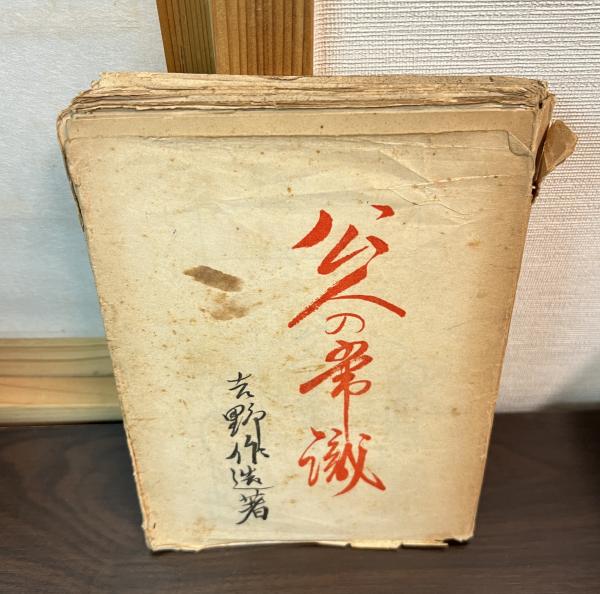 公人の常識
吉野作造著